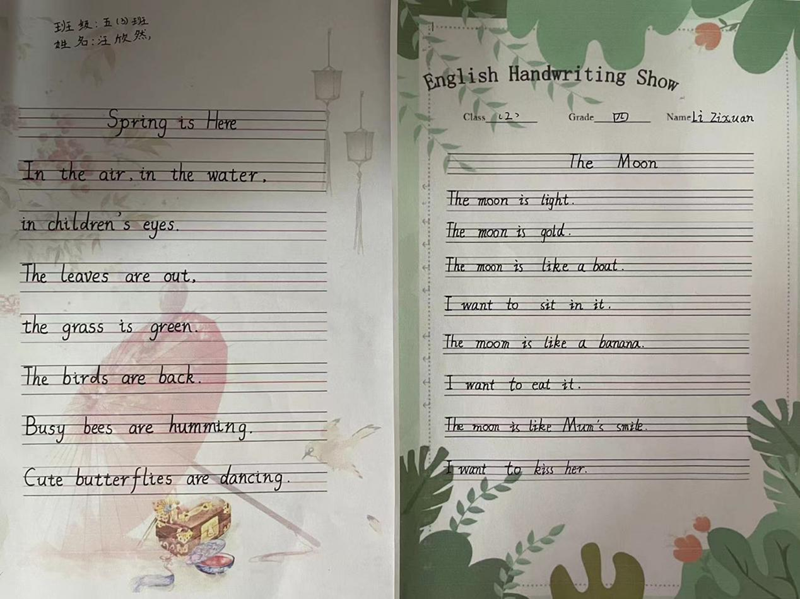 班级:五(2)班
姓名:汪欣然,
Spring is Here
In the air, in the water,
in children's eyes.
The leaves are out,
the grass is green.
The birds are back.
Busy bees are humming.
Cute butterflies are dancing.
English Handwriting Show
Class (2) Grade 四 Name Li Zixuan
The Moon
The moon is light.
The moon is gold.
The moon is like a boat.
I want to sit in it.
The moom is like a banana.
I want to eat it.
The moon is like Mum's smile.
I want to kiss her.